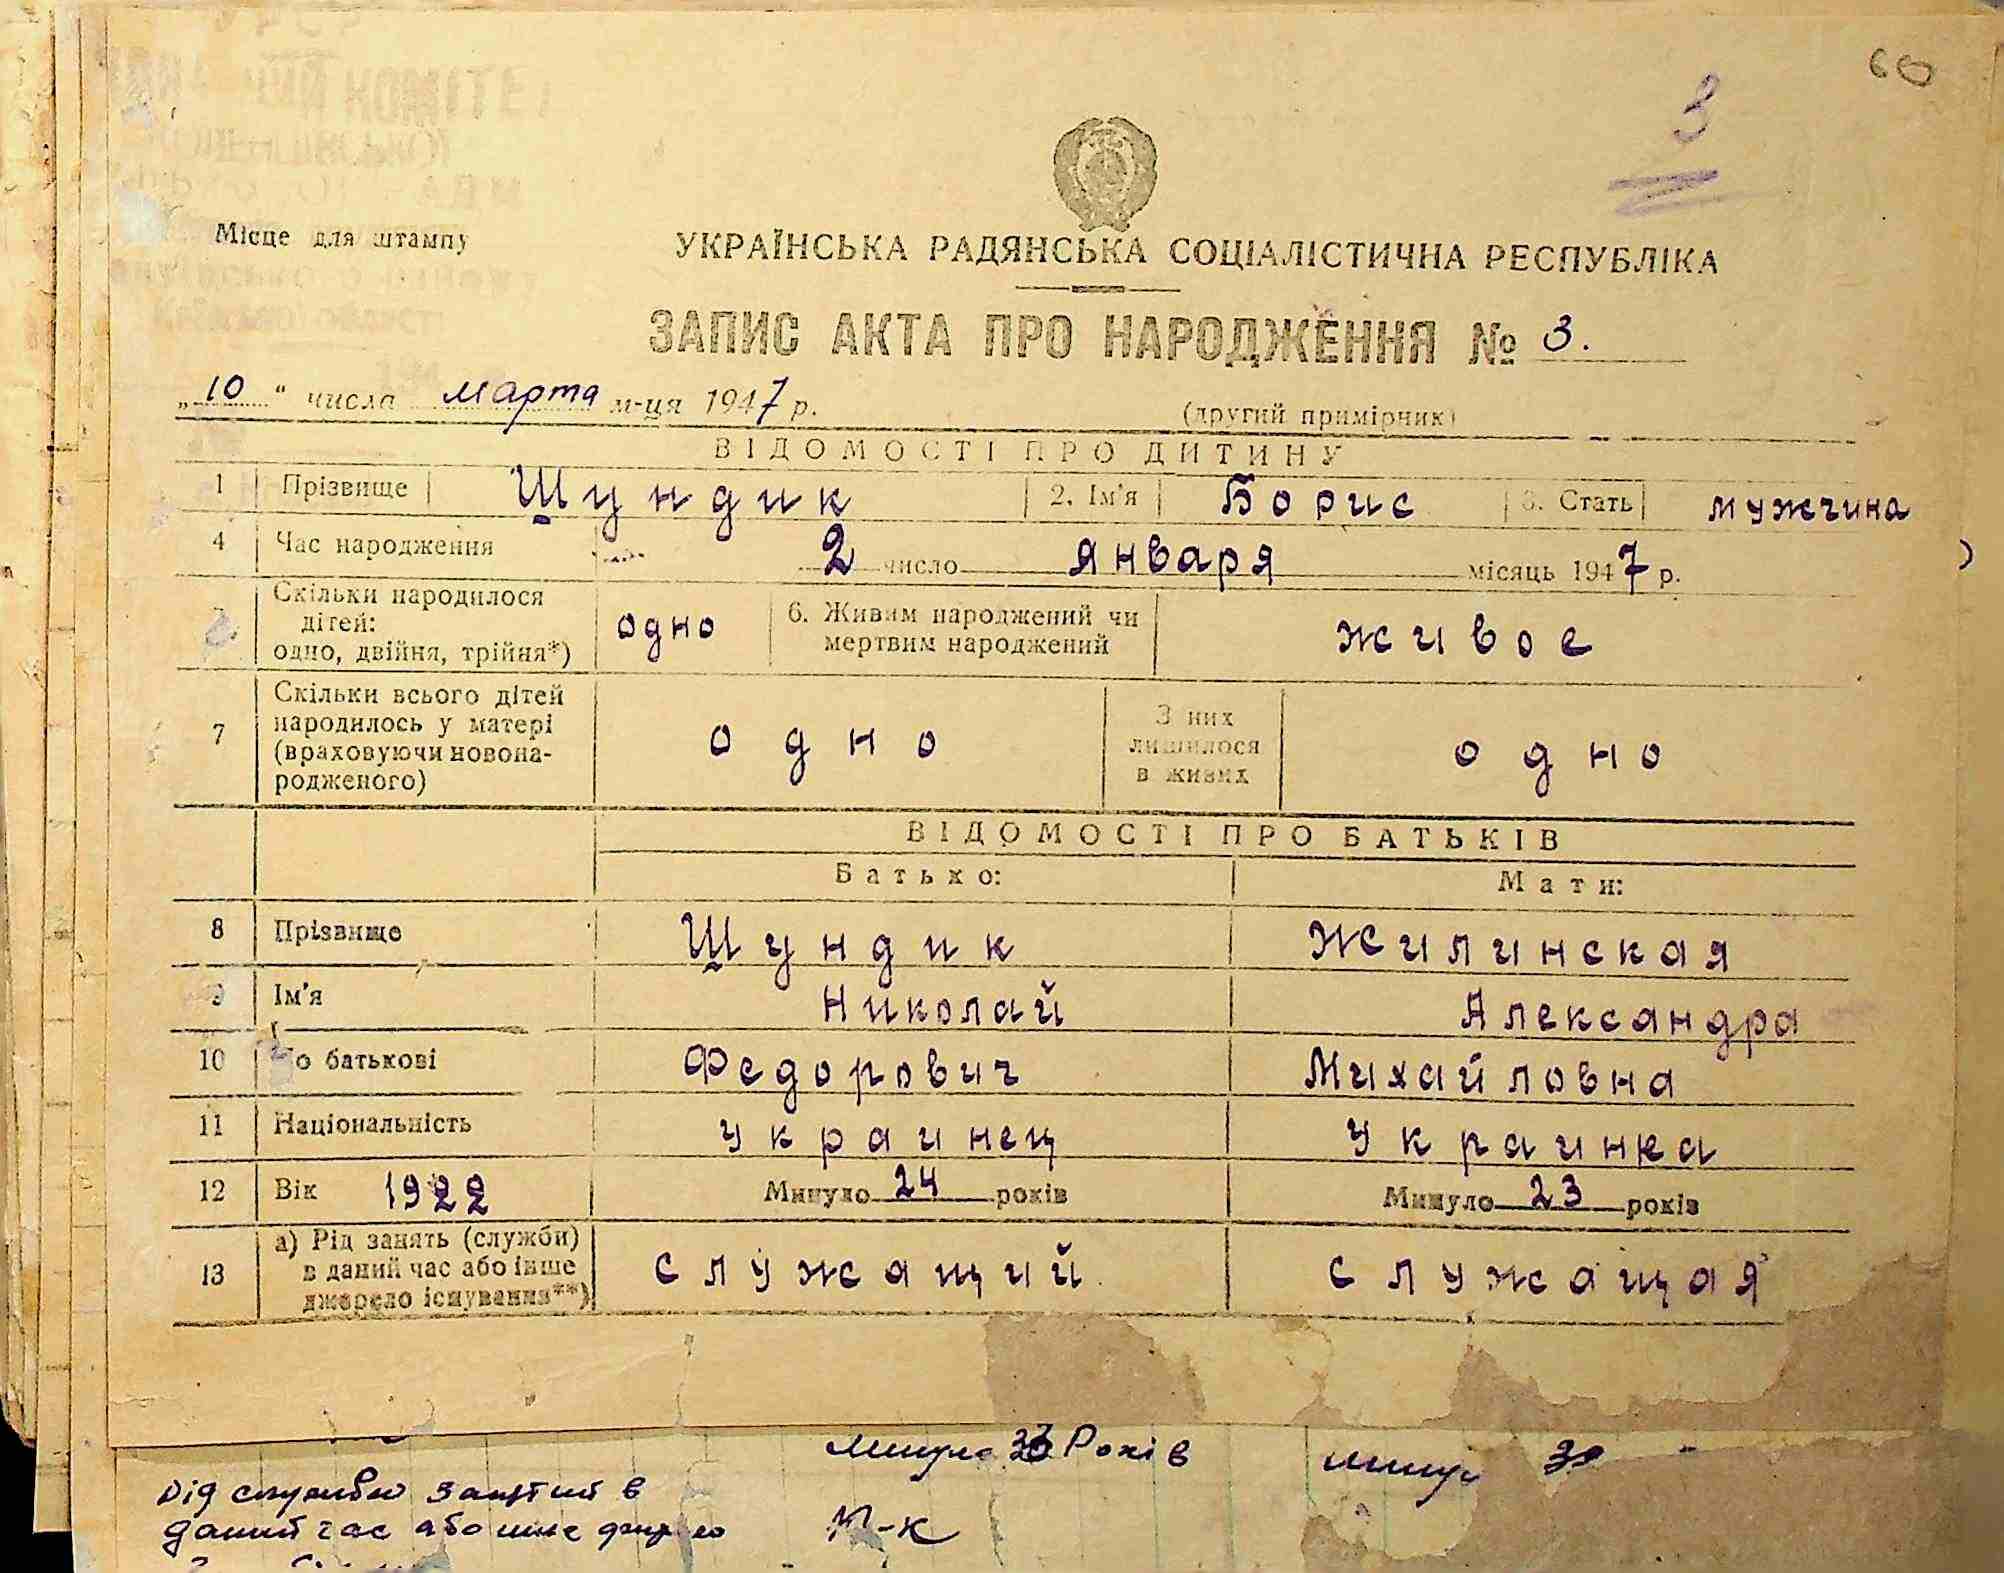 60
3
Місце для штампу
УКРАЇНСЬКА РАДЯНСЬКА СОЦІАЛІСТИЧНА РЕСПУБЛІКА
ЗАПИС АКТА ПРО НАРОДЖЕННЯ № 3.
„10“ числа марта м-ця 1947 р. (другий примірник)
ВІДОМОСТІ ПРО ДИТИНУ
1 Прізвище Шундик 2. Ім'я Борис 3. Стать мужчина
4 Час народження 2 число января місяць 1947 р.
Скільки народилося
дітей:
одно, двійня, трійня*) одно 6. Живим народжений чи
мертвим народжений живое
7 Скільки всього дітей
народилось у матері
(враховуючи новона-
родженого) одно З них
лишилося
в живих одно
ВІДОМОСТІ ПРО БАТЬКІВ
Батько: Мати:
8 Прізвище Шундик Жилинская
9 Ім'я Николай Александра
10 По батькові Федорович Михайловна
11 Національність украинец украинка
12 Вік 1922 Минуло 24 років Минуло 23 років
13 а) Рід занять (служби)
в даний час або інше
джерело існування**) служащий служащая
минуло 33 Років минул
Рід службы занятий в
даний час або инше М-к